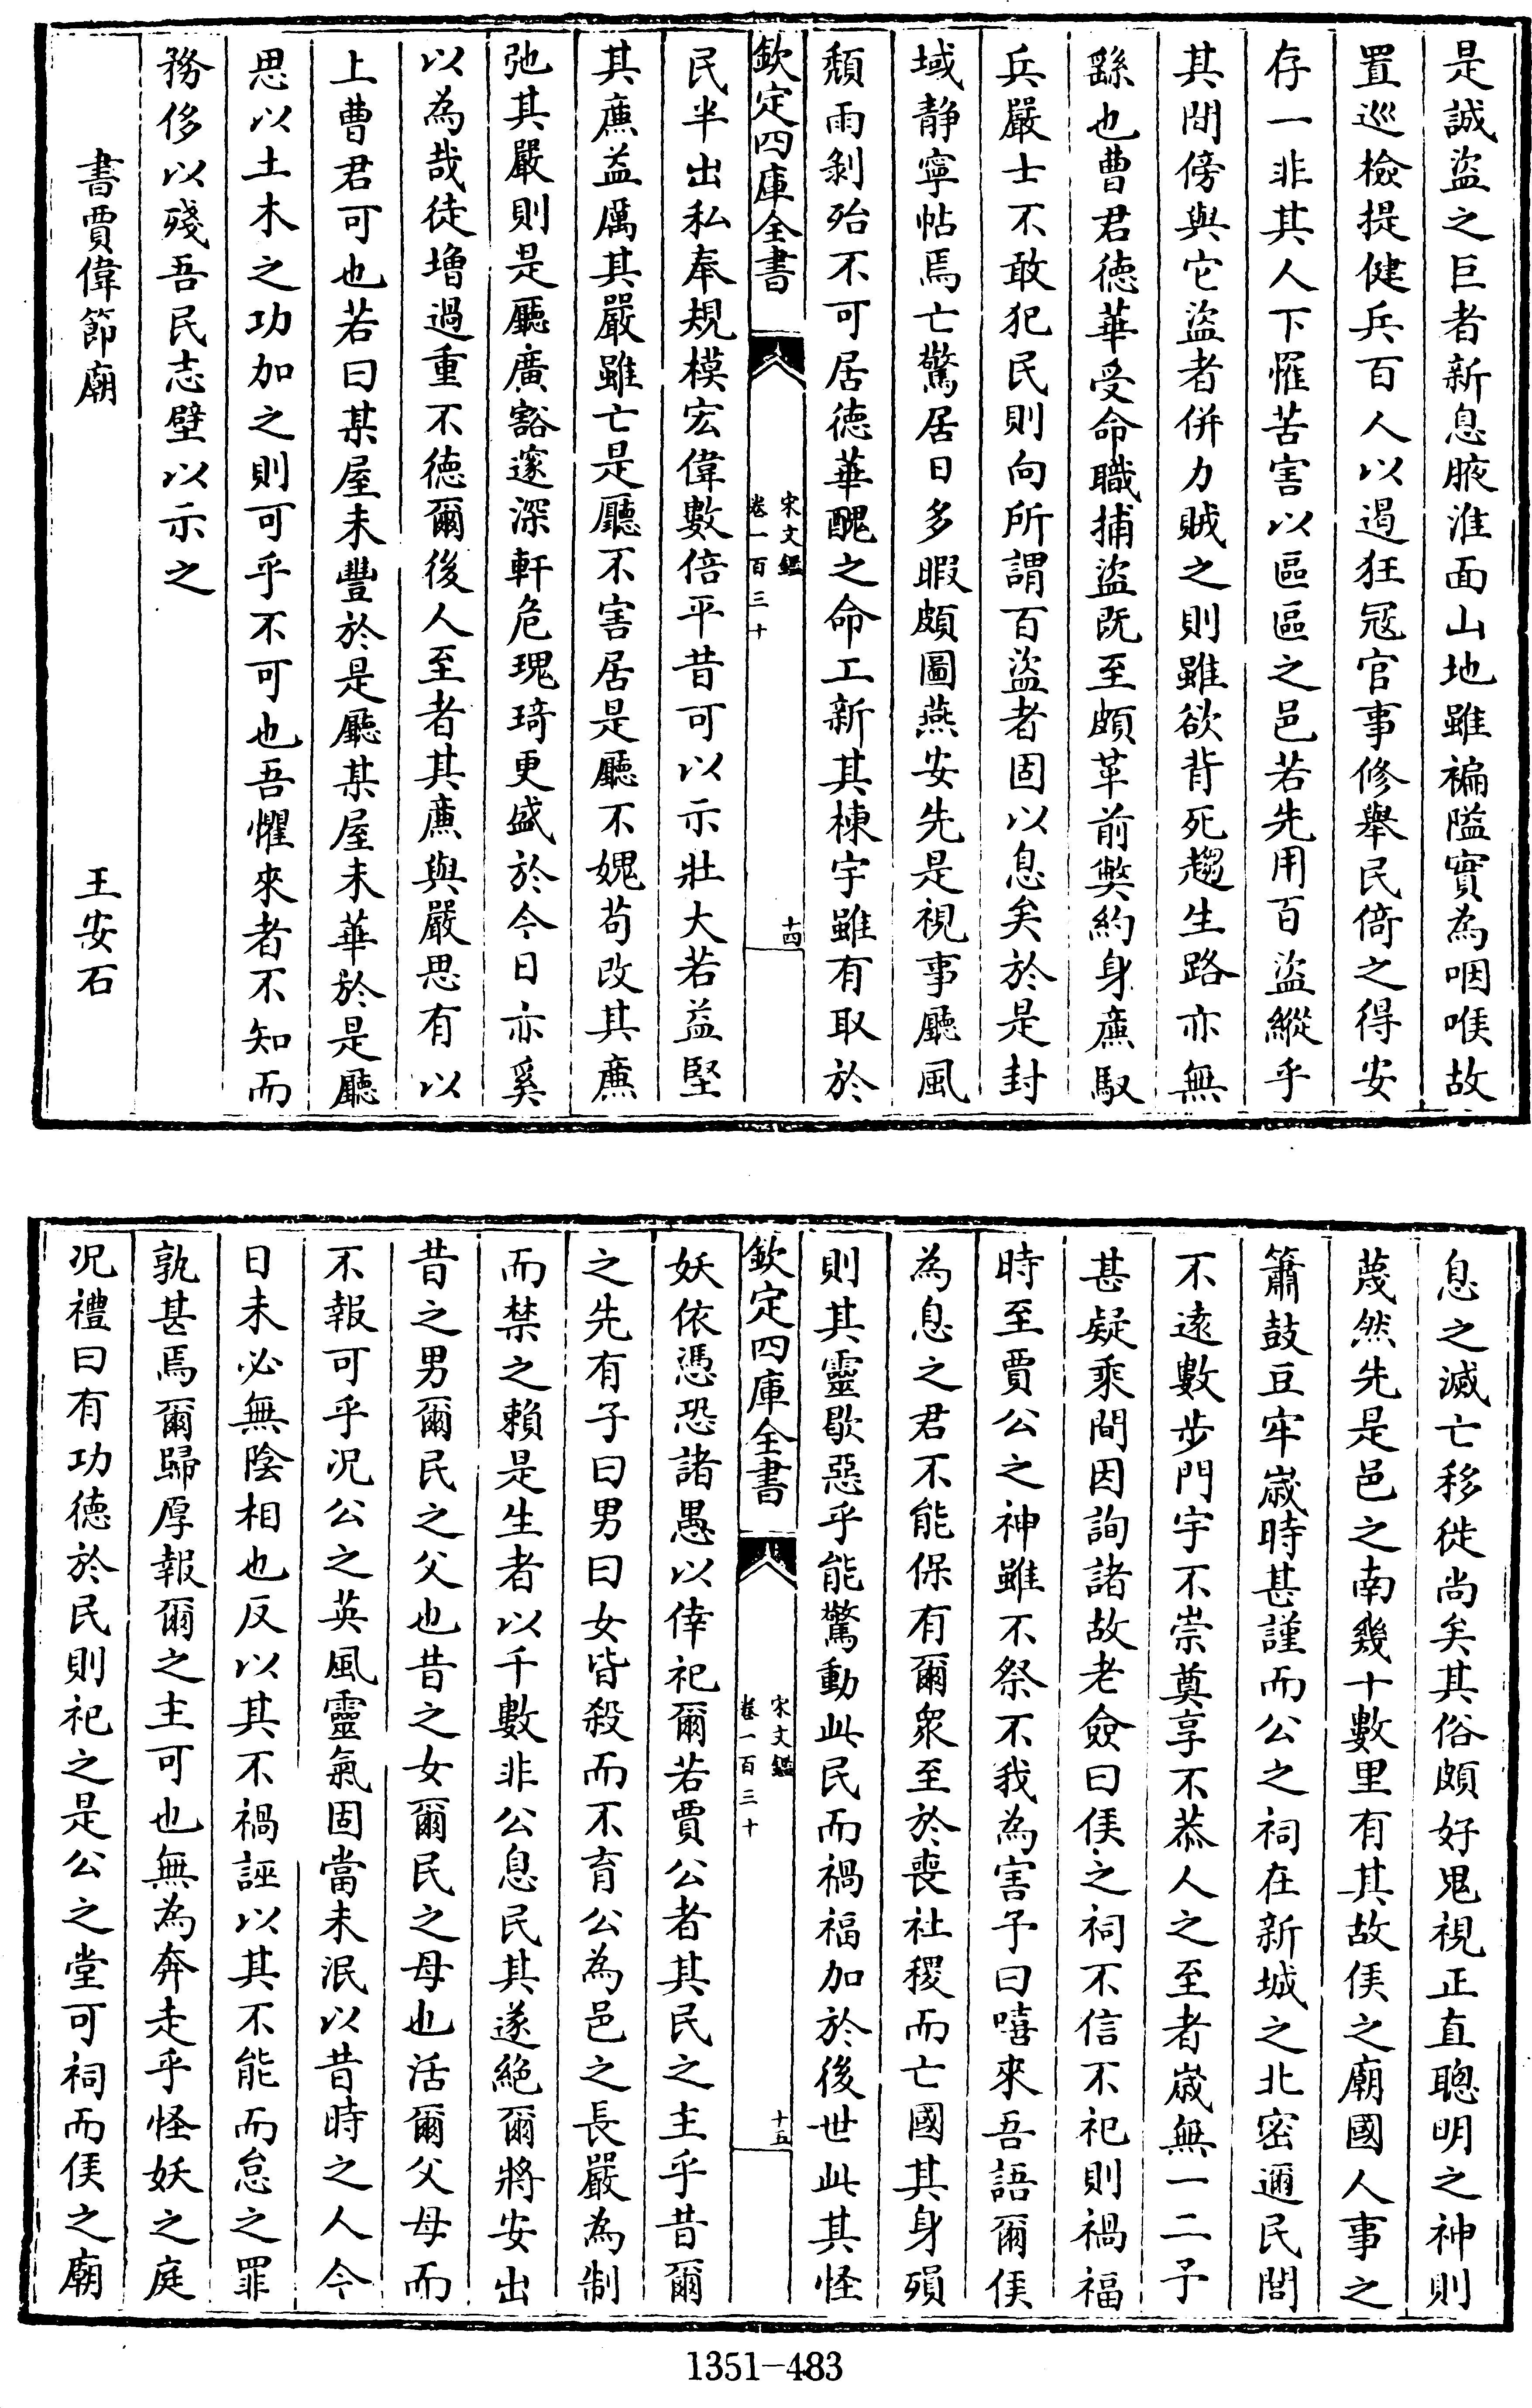 是誠盜之巨者新息腋淮面山地雖褊隘實為咽喉故
置巡檢提健兵百人以遏狂冦官事修舉民倚之得安
存一非其人下罹苦害以區區之邑若先用百盜縱乎
其間傍與它盜者併力賊之則雖欲背死趨生路亦無
繇也曹君德華受命職捕盜既至頗革前獘約身㢘馭
兵嚴士不敢犯民則向所謂百盜者固以息矣於是封
域静寧帖焉亡驚居日多暇頗圖燕安先是視事廳風
頹雨剝殆不可居德華醜之命工新其棟宇雖有取於
欽定四庫全書
宋文鑑
卷一百三十
十四
民半出私奉規模宏偉數倍平昔可以示壯大若益堅
其㢘益厲其嚴雖亡是廳不害居是廳不媿苟改其㢘
弛其嚴則是廳廣豁邃深軒危瑰琦更盛於今日亦奚
以為哉徒增過重不德爾後人至者其㢘與嚴思有以
上曹君可也若曰某屋未豐於是廳某屋未華於是廳
思以土木之功加之則可乎不可也吾懼來者不知而
務侈以殘吾民志壁以示之
書賈偉節廟
王安石
息之滅亡移徙尚矣其俗頗好鬼視正直聰明之神則
蔑然先是邑之南幾十數里有其故侯之廟國人事之
簫鼓豆牢嵗時甚謹而公之祠在新城之北密邇民閭
不遠數步門宇不崇奠享不恭人之至者嵗無一二予
甚疑乘間因詢諸故老僉曰侯之祠不信不祀則禍福
時至賈公之神雖不祭不我為害予曰嘻來吾語爾侯
為息之君不能保有爾衆至於喪社稷而亡國其身殞
則其靈歇惡乎能驚動此民而禍福加於後世此其怪
欽定四庫全書
宋文鑑
卷一百三十
十五
妖依憑恐諸愚以倖祀爾若賈公者其民之主乎昔爾
之先有子曰男曰女皆殺而不育公為邑之長嚴為制
而禁之賴是生者以千數非公息民其遂絕爾將安出
昔之男爾民之父也昔之女爾民之母也活爾父母而
不報可乎况公之英風靈氣固當未泯以昔時之人今
日未必無陰相也反以其不禍誣以其不能而怠之罪
孰甚焉爾歸厚報爾之主可也無為奔走乎怪妖之庭
况禮曰有功德於民則祀之是公之堂可祠而侯之廟
1351-483